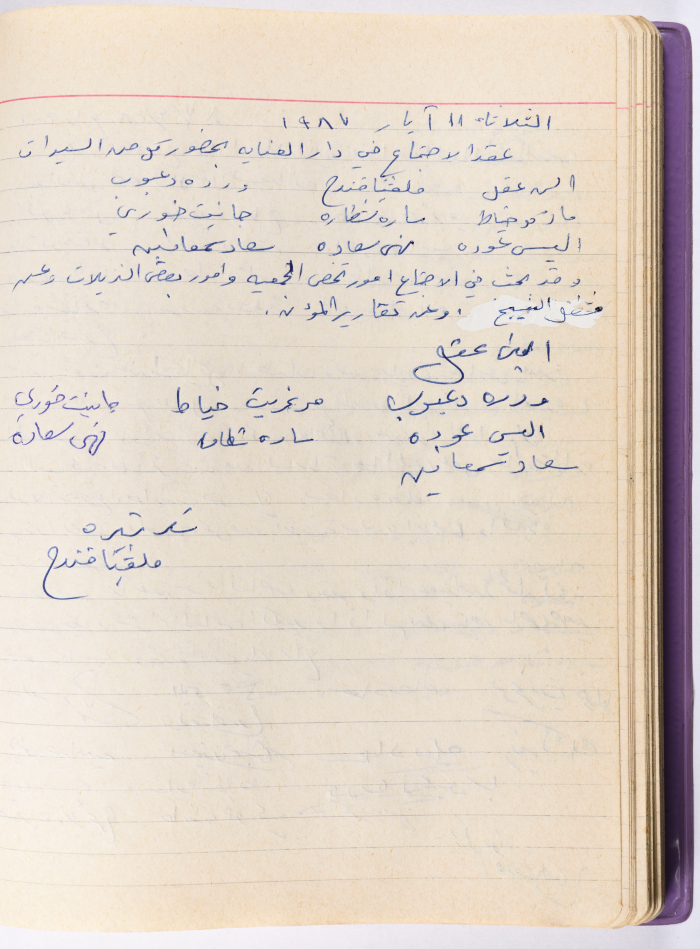 الثلاثاء ١١ آيار ١٩٨٧
عقد الاجتماع في دار العنايه بحضور كل من السيدات
الين عقل ملفينا قندح ورده دعبوب
مارغو خياط ساره شطاره جانيت خوري
اليس عوده نهى سعاده سعاد سمعانين
وقد بحث في الاجتماع امور تخص الجمعيه وامور بعض النزيلات وعن
وعن تقارير المؤن .
الين عقل
ورده دعبوب مرغريت خياط جانيت خوري
اليس عوده ساره شطاره نهى سعادة
سعاد سمعانين
ملفينا قندح